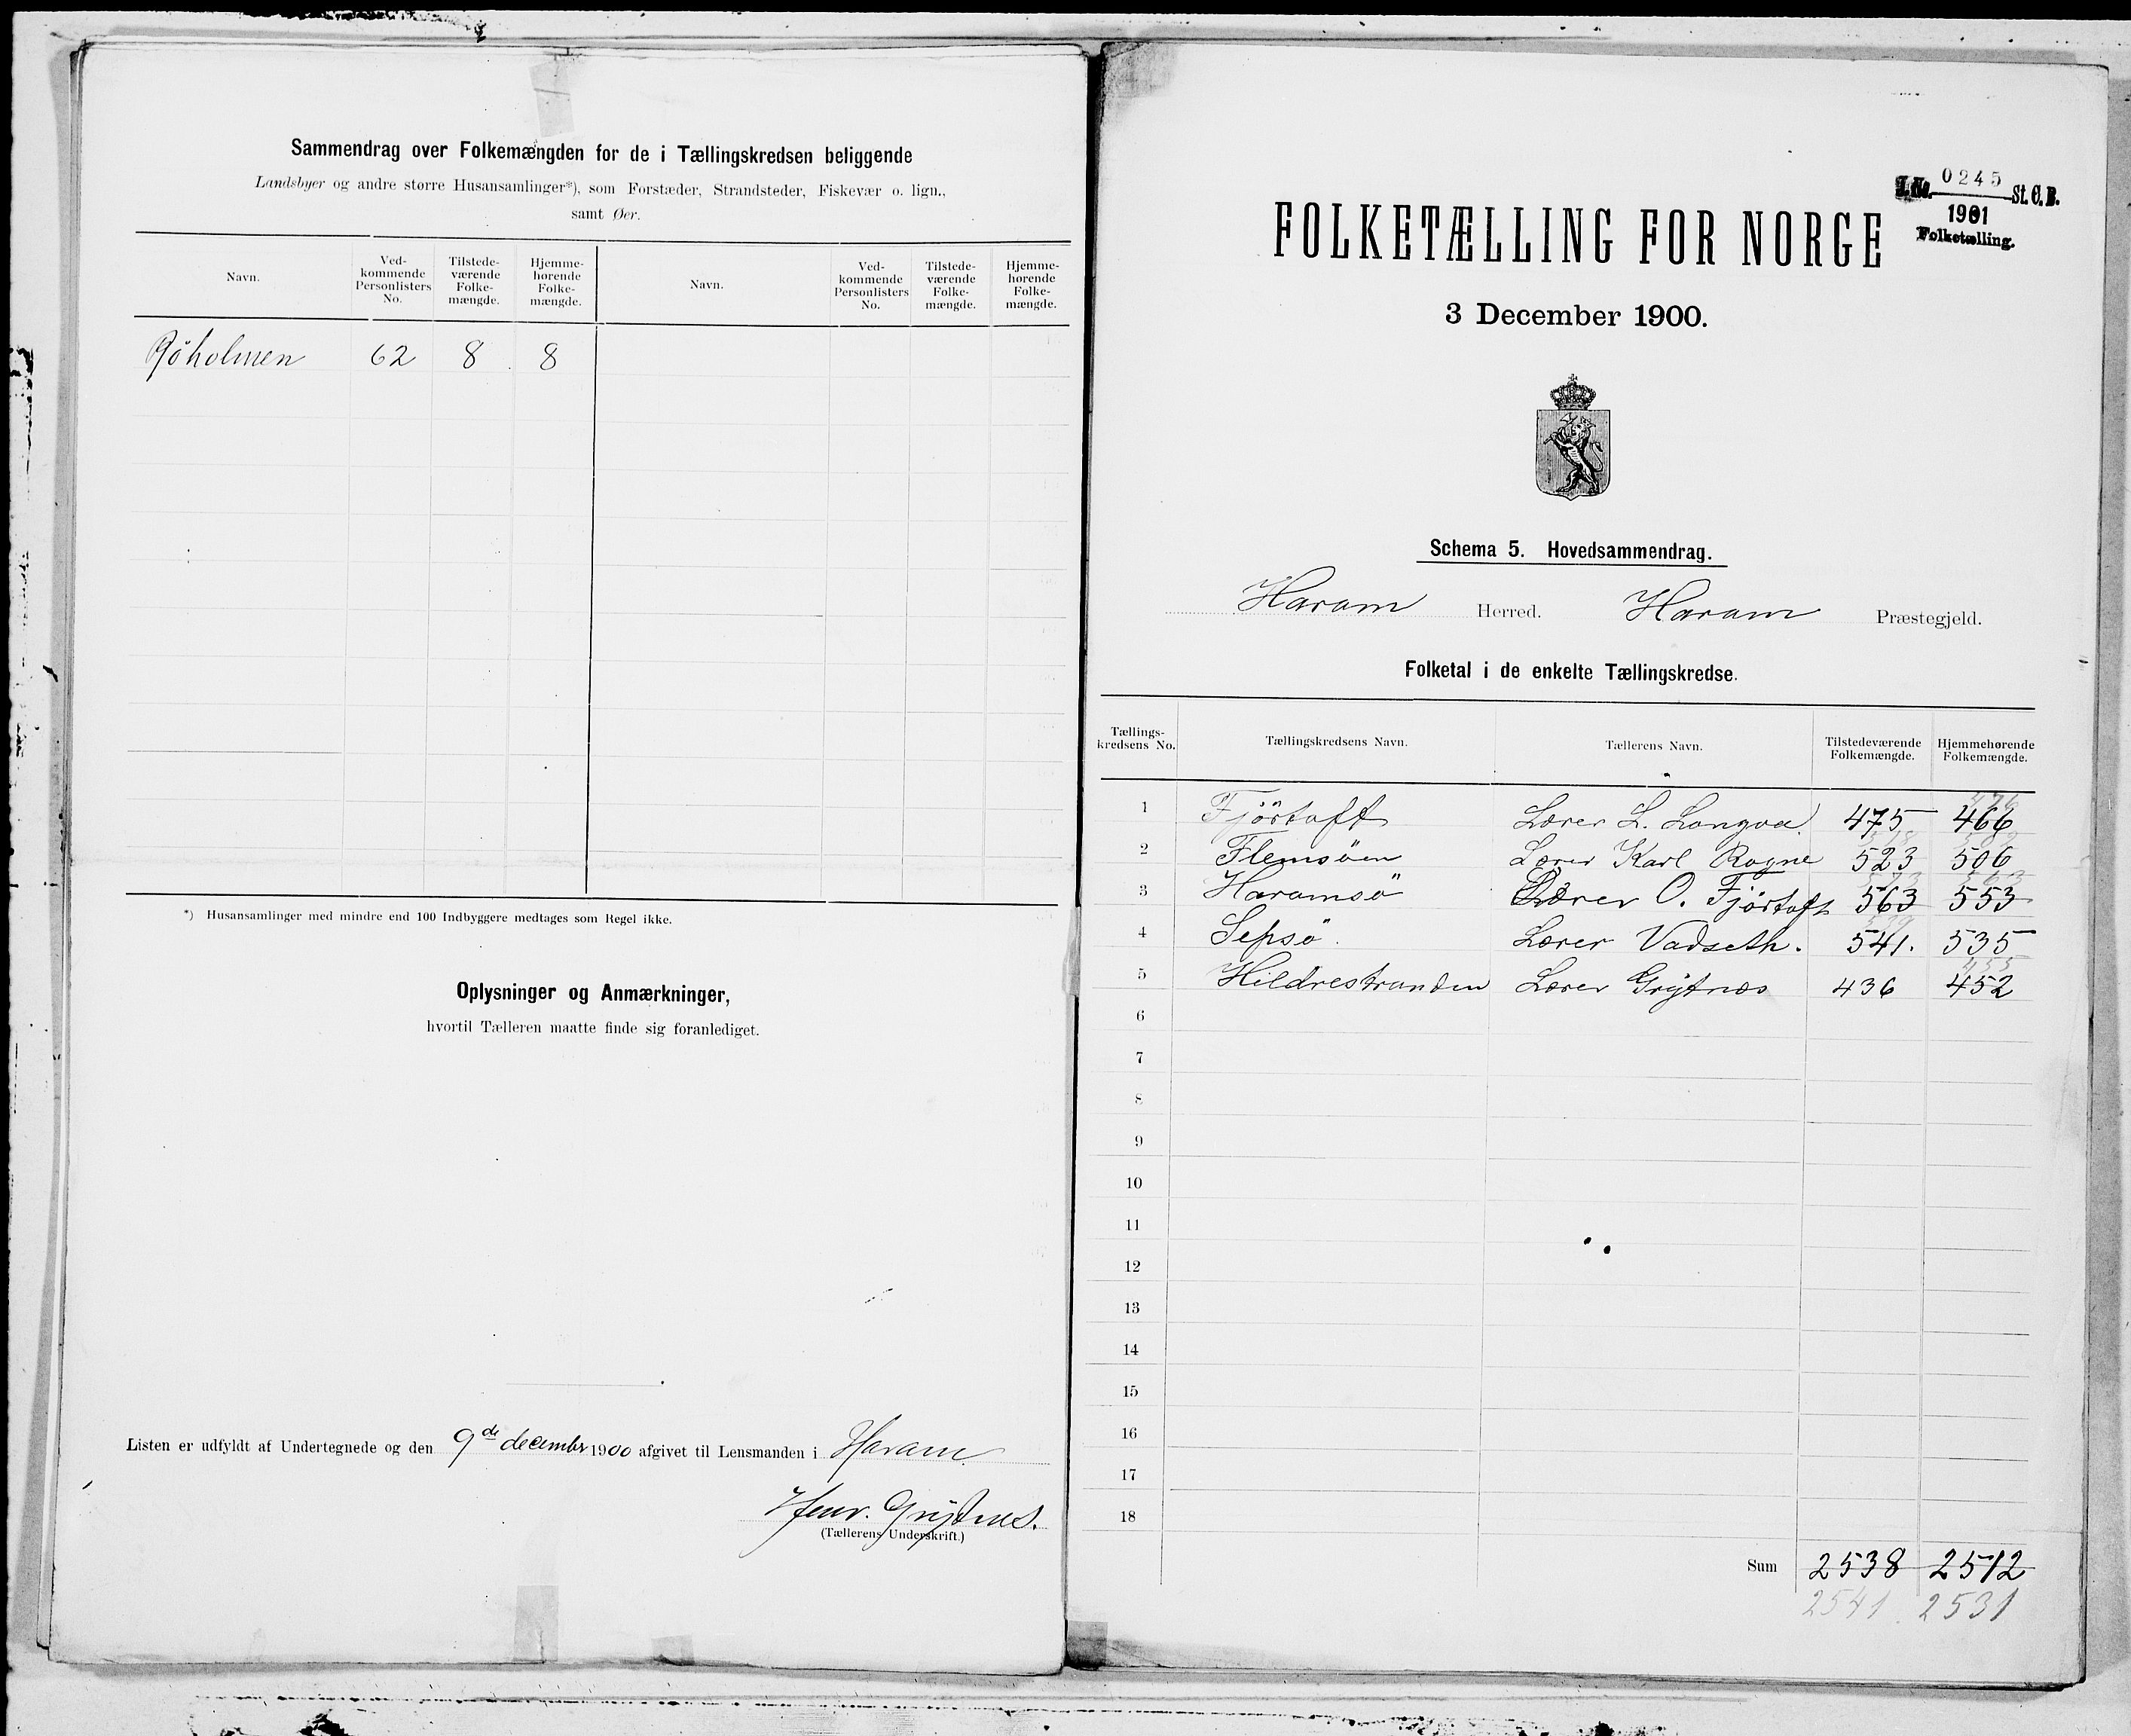 Sammendrag over Folkemængden for de i Tællingskredsen beliggende
Landsbyer og andre større Husansamlinger*), som Forstæder, Strandsteder, Fiskevær o. lign.,
samt Øer.
Navn. Ved-kommende Personlisters No. Tilstede-værende Folke-mængde. Hjemme-hørende Folke-mængde. Navn. Ved-kommende Personlisters No. Tilstede-værende Folke-mængde. Hjemme-hørende Folke-mængde.
Röholmen 62 8 8
*) Husansamlinger med mindre end 100 Indbyggere medtages som Regel ikke.
Oplysninger og Anmærkninger,
hvortil Tælleren maatte finde sig foranlediget.
Listen er udfyldt af Undertegnede og den 9de decembr 1900 afgivet til Lensmanden i Haram.
Henr. Grytnes.
(Tællerens Underskrift.)
J. No. 0245 St. C. B.
1901
Folketælling.
FOLKETÆLLING FOR NORGE
3 December 1900.
Schema 5. Hovedsammendrag.
Haram Herred. Haram Præstegjeld.
Folketal i de enkelte Tællingskredse.
Tællings-kredsens No. Tællingskredsens Navn. Tællerens Navn. Tilstedeværende Folkemængde. Hjemmehørende Folkemængde.
1 Fjörtoft Lærer L. Longva. 475 466
2 Flemsöen Lærer Karl Rogne 523 506
3 Haramsö Lærer O. Fjörtoft 563 553
4 Sepsö. Lærer Vadseth. 541. 535
5 Hildrestranden Lærer Grytnæs 436 452
6
7
8
9
10
11
12
13
14
15
16
17
18
Sum 2538 2512
2541 2531